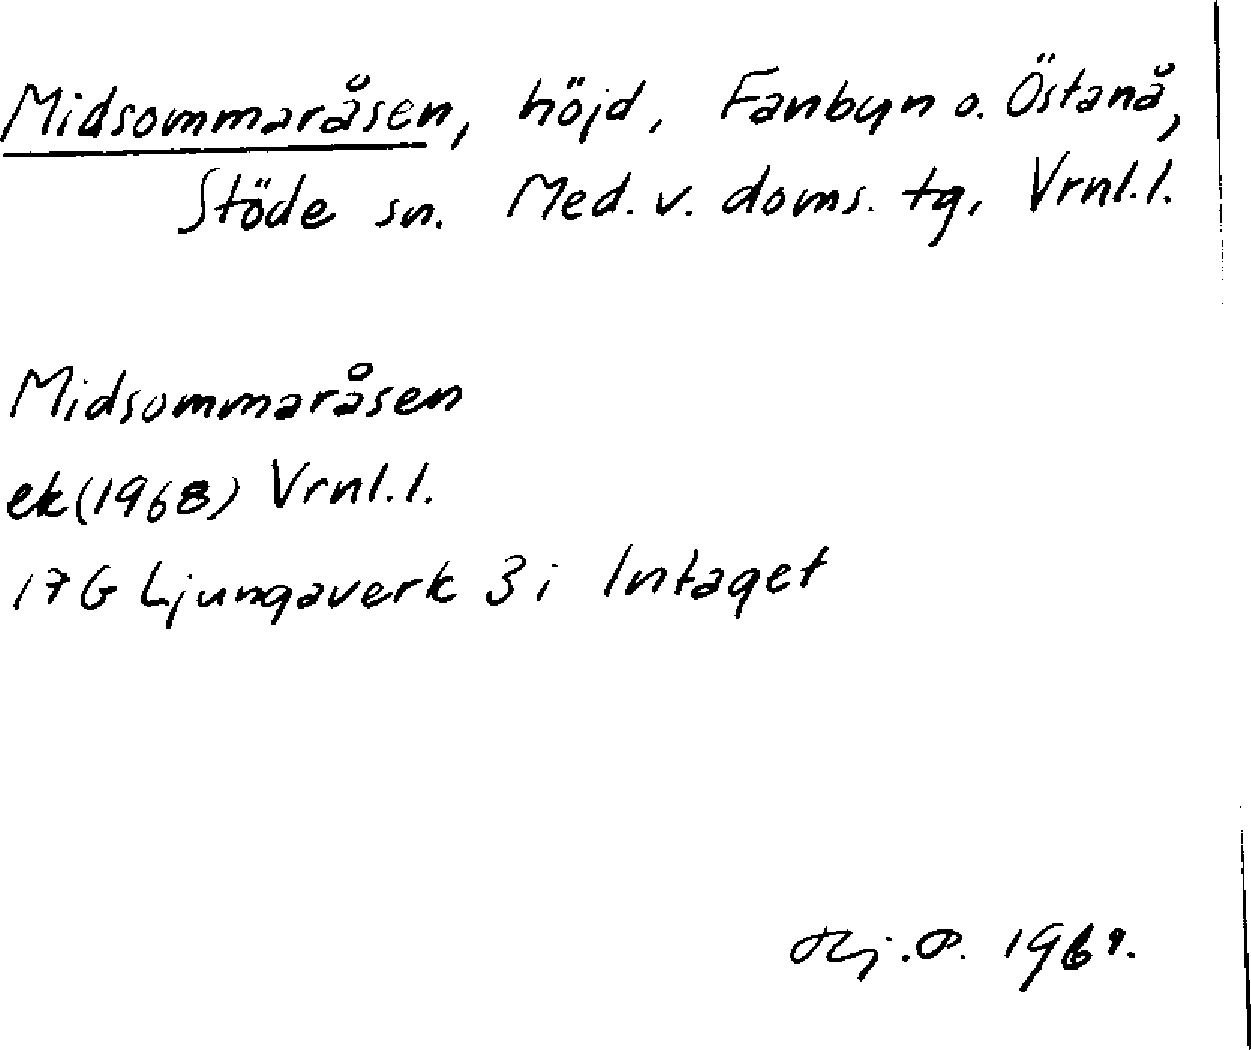 Midsommaråsen, höjd, Fanbyn o. Östanå,
Stöde sn. Med. v. doms. tg. Vrnl. l.
Midsommaråsen
ek (1968) Vrnl. l.
17 G Ljungaverk 3 i Intaget
1969.